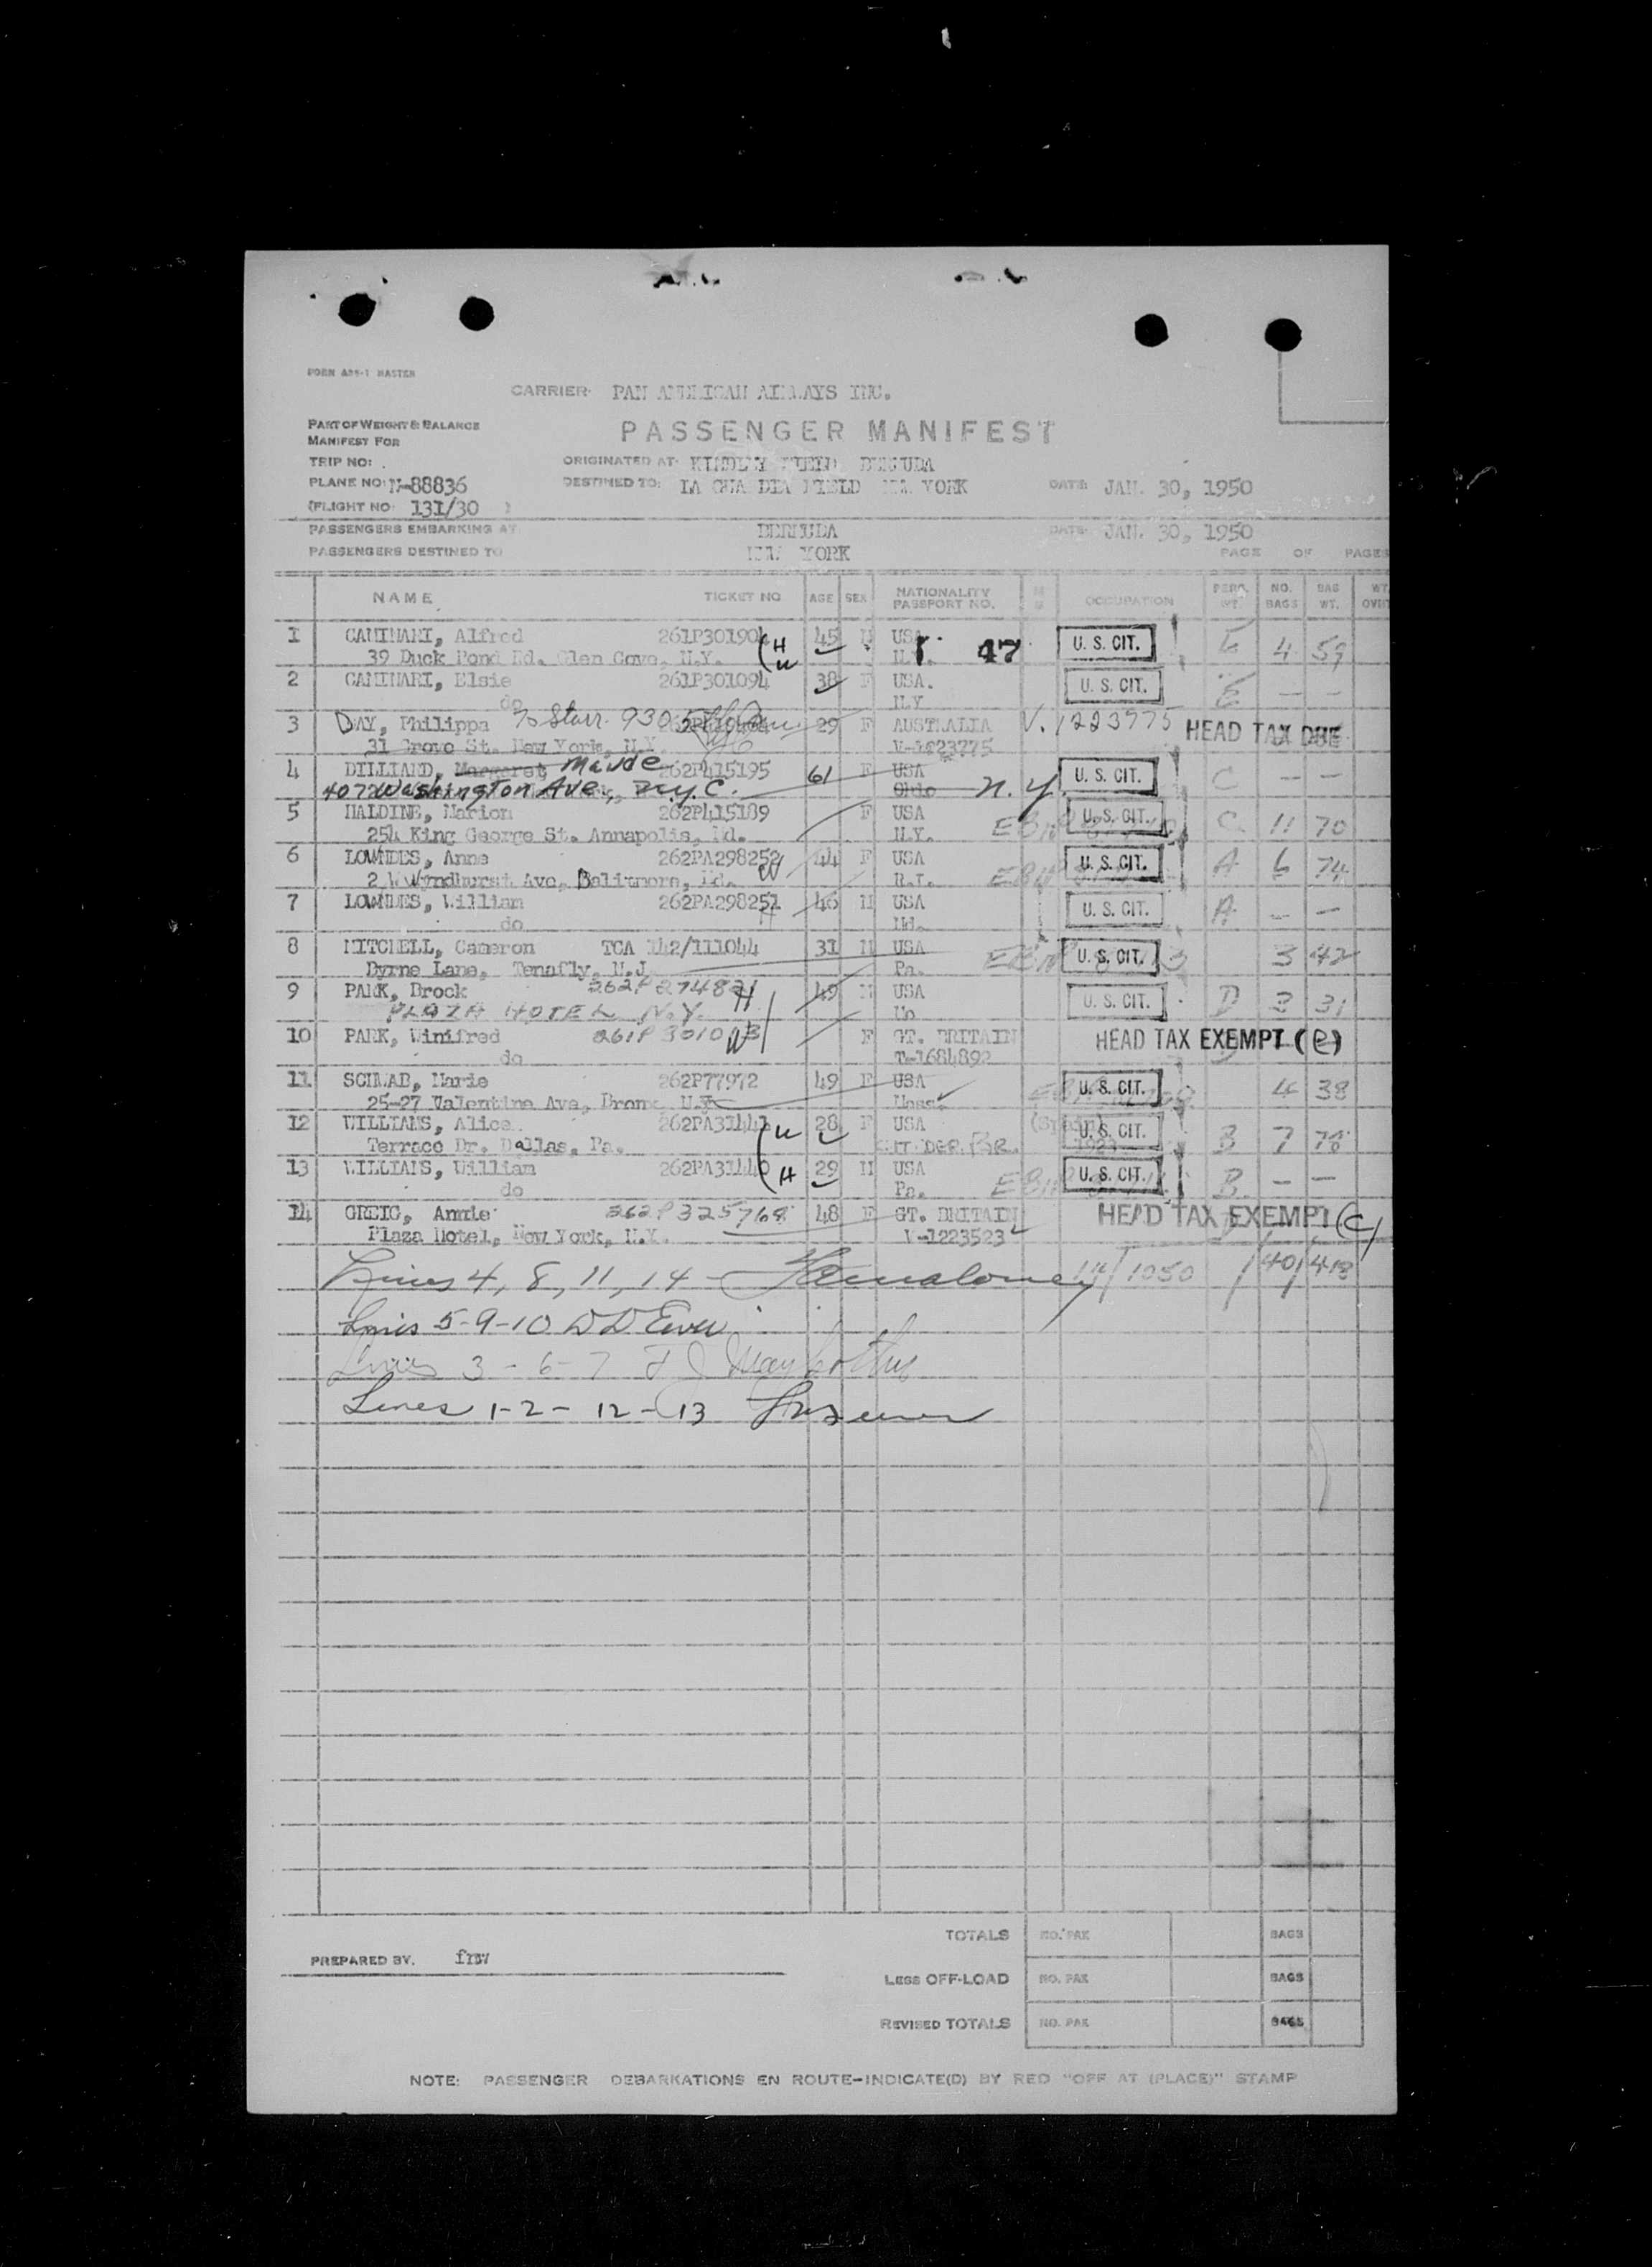 FORM 439-1 MASTER
CARRIER: PAN AMERICAN AIRWAYS INC.
PART OF WEIGHT & BALANCE
MANIFEST FOR
PASSENGER MANIFEST
TRIP NO:
ORIGINATED AT: KINDLEY FIELD BERMUDA
PLANE NO: N-88836 DESTINED TO: LA GUARDIA FIELD NEW YORK DATE: JAN. 30, 1950
(FLIGHT NO: 131/30 )
PASSENGERS EMBARKING AT BERMUDA DATE: JAN. 30, 1950
PASSENGERS DESTINED TO NEW YORK PAGE OF PAGES
NAME TICKET NO AGE SEX NATIONALITY PASSPORT NO. OCCUPATION PERS. WT. NO. BAGS BAG WT. WT.
1 CAMINARI, Alfred 261P301904 H 45 M USA 47 U. S. CIT. E 4 59
39 Duck Pond Rd. Glen Cove, N.Y. W N.Y.
2 CAMINARI, Elsie 261P301094 38 F USA. U. S. CIT. E - -
do N.Y
3 DAY, Philippa 29 F AUSTRALIA V. 1223775 HEAD TAX DUE
31 Grove St. New York, N.Y. V-1223775
4 DILLIARD, Margaret Maude 262P415195 61 F USA U. S. CIT. C - -
4072 Washington Ave., N.Y.C. Ohio N.Y.
5 HALDINE, Marion 262P415189 F USA U. S. CIT. C 11 70
254 King George St. Annapolis, Md. N.Y.
6 LOWNDES, Anne 262PA298252 W 44 F USA U. S. CIT. A 6 74
2 W Wyndhurst Ave, Baltimore, Md. R.I.
7 LOWNDES, William 262PA298251 H 46 M USA U. S. CIT. A - -
do Md.
8 MITCHELL, Cameron TCA 142/111044 31 M USA U. S. CIT. 3 42
Byrne Lane, Tenafly, N.J. Pa.
9 PARK, Brock 262P27482 H 49 M USA U. S. CIT. D 3 31
PLAZA HOTEL N.Y. Mo
10 PARK, Winifred 261P3010 W F GT. BRITAIN HEAD TAX EXEMPT (e)
do T-1684892
11 SCHWAB, Marie 262P77972 49 F USA U. S. CIT. 4 38
25-27 Valentine Ave, Bronx, N.Y. Mass.
12 WILLIAMS, Alice 262PA31441 W 28 F USA (Spain) U. S. CIT. B 7 78
Terrace Dr. Dallas, Pa.
13 WILLIAMS, William 262PA31440 H 29 M USA U. S. CIT. B - -
do Pa.
14 GREIG, Annie 262P325768 48 F GT. BRITAIN HEAD TAX EXEMPT (C)
Plaza Hotel, New York, N.Y. V-1223523
Lines 4, 8, 11, 14 - 14/1050 / 40/418
Lines 5-9-10
Lines 3-6-7
Lines 1-2-12-13
TOTALS NO. PAX BAGS
PREPARED BY.
LESS OFF-LOAD NO. PAX BAGS
REVISED TOTALS NO. PAX BAGS
NOTE: PASSENGER DEBARKATIONS EN ROUTE-INDICATE(D) BY RED "OFF AT (PLACE)" STAMP